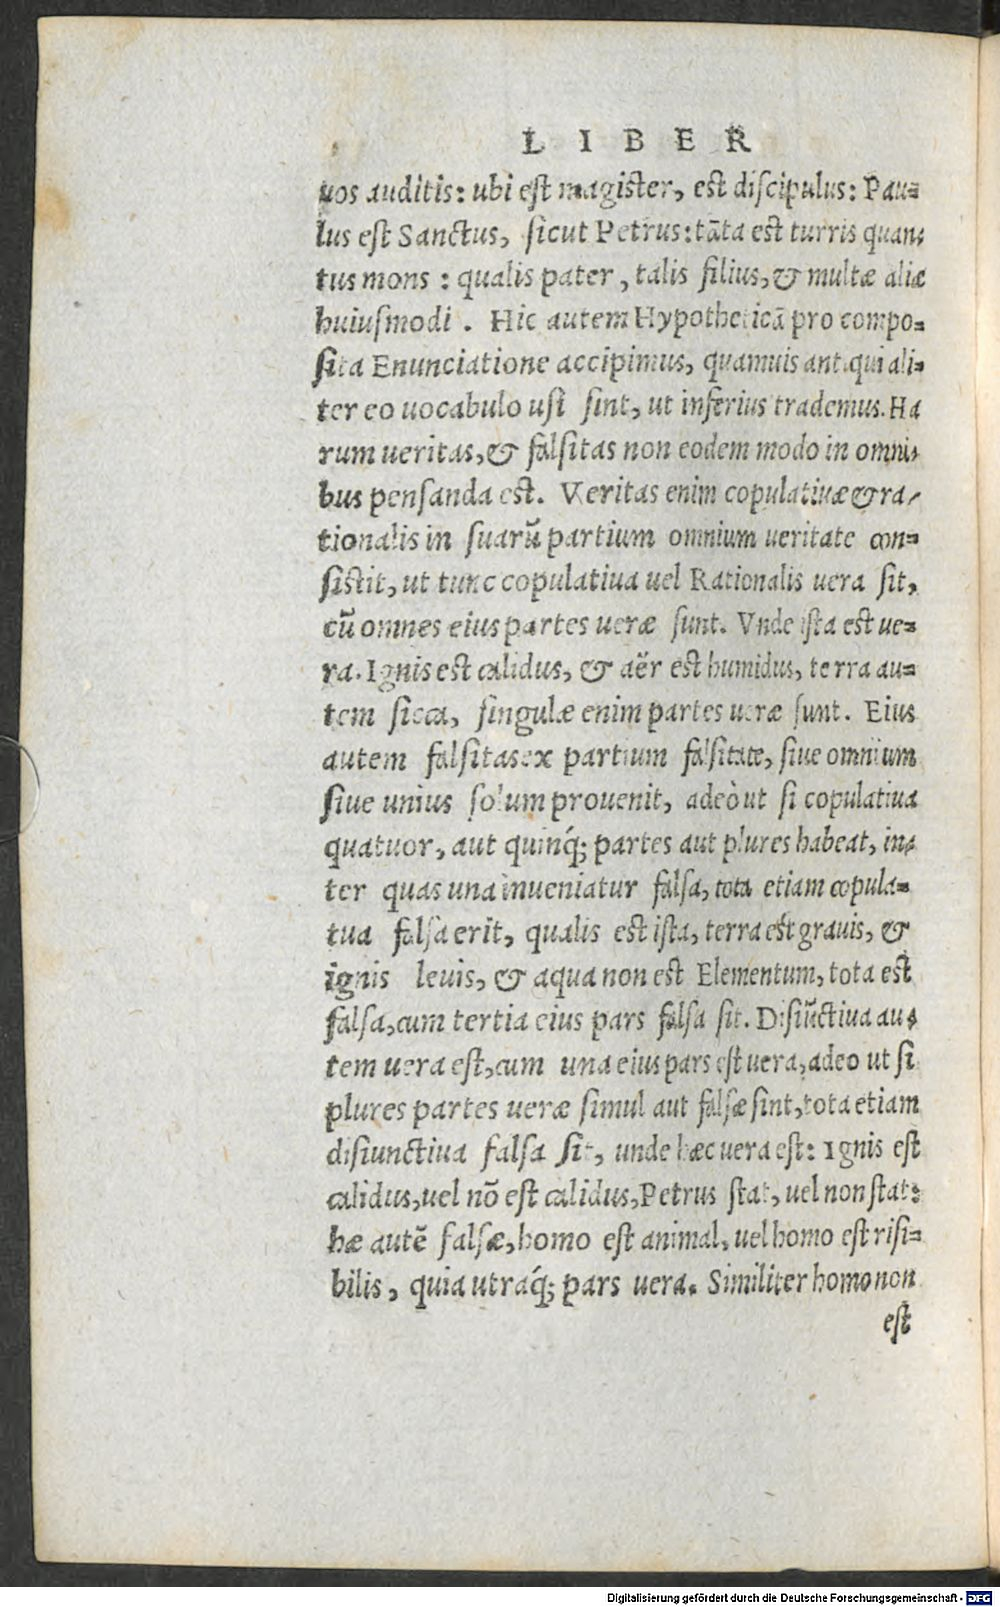 LIBER
uos auditis: ubi est magister, est discipulus: Pau=
lus est Sanctus, sicut Petrus: tāta est turris quan=
tus mons : qualis pater, talis filius, & multæ aliæ
huiusmodi . Hic autem Hypotheticā pro compo=
sita Enunciatione accipimus, quamuis antiqui ali=
ter eo uocabulo usi sint, ut inferius trademus. Ha
rum ueritas, & falsitas non eodem modo in omni=
bus pensanda est. Veritas enim copulatiuæ & ra=
tionalis in suarū partium omnium ueritate con=
sistit, ut tunc copulatiua uel Rationalis uera sit,
cū omnes eius partes ueræ sunt. Vnde ista est ue=
ra. Ignis est calidus, & aër est humidus, terra au=
tem sicca, singulæ enim partes ueræ sunt. Eius
autem falsitas ex partium falsitate, siue omnium
siue unius solum prouenit, adeò ut si copulatiua
quatuor, aut quinq́; partes aut plures habeat, in=
ter quas una inueniatur falsa, tota etiam copula=
tua falsa erit, qualis est ista, terra est grauis, &
ignis leuis, & aqua non est Elementum, tota est
falsa, cum tertia eius pars falsa sit. Disiūctiua au=
tem uera est, cum una eius pars est uera, adeo ut si
plures partes ueræ simul aut falsæ sint, tota etiam
disiunctiua falsa sit, unde hæc uera est: Ignis est
calidus, uel nō est calidus, Petrus stat, uel non stat:
hæ autē falsæ, homo est animal, uel homo est risi=
bilis, quia utraq́; pars uera. Similiter homo non
est
Digitalisierung gefördert durch die Deutsche Forschungsgemeinschaft - DFG